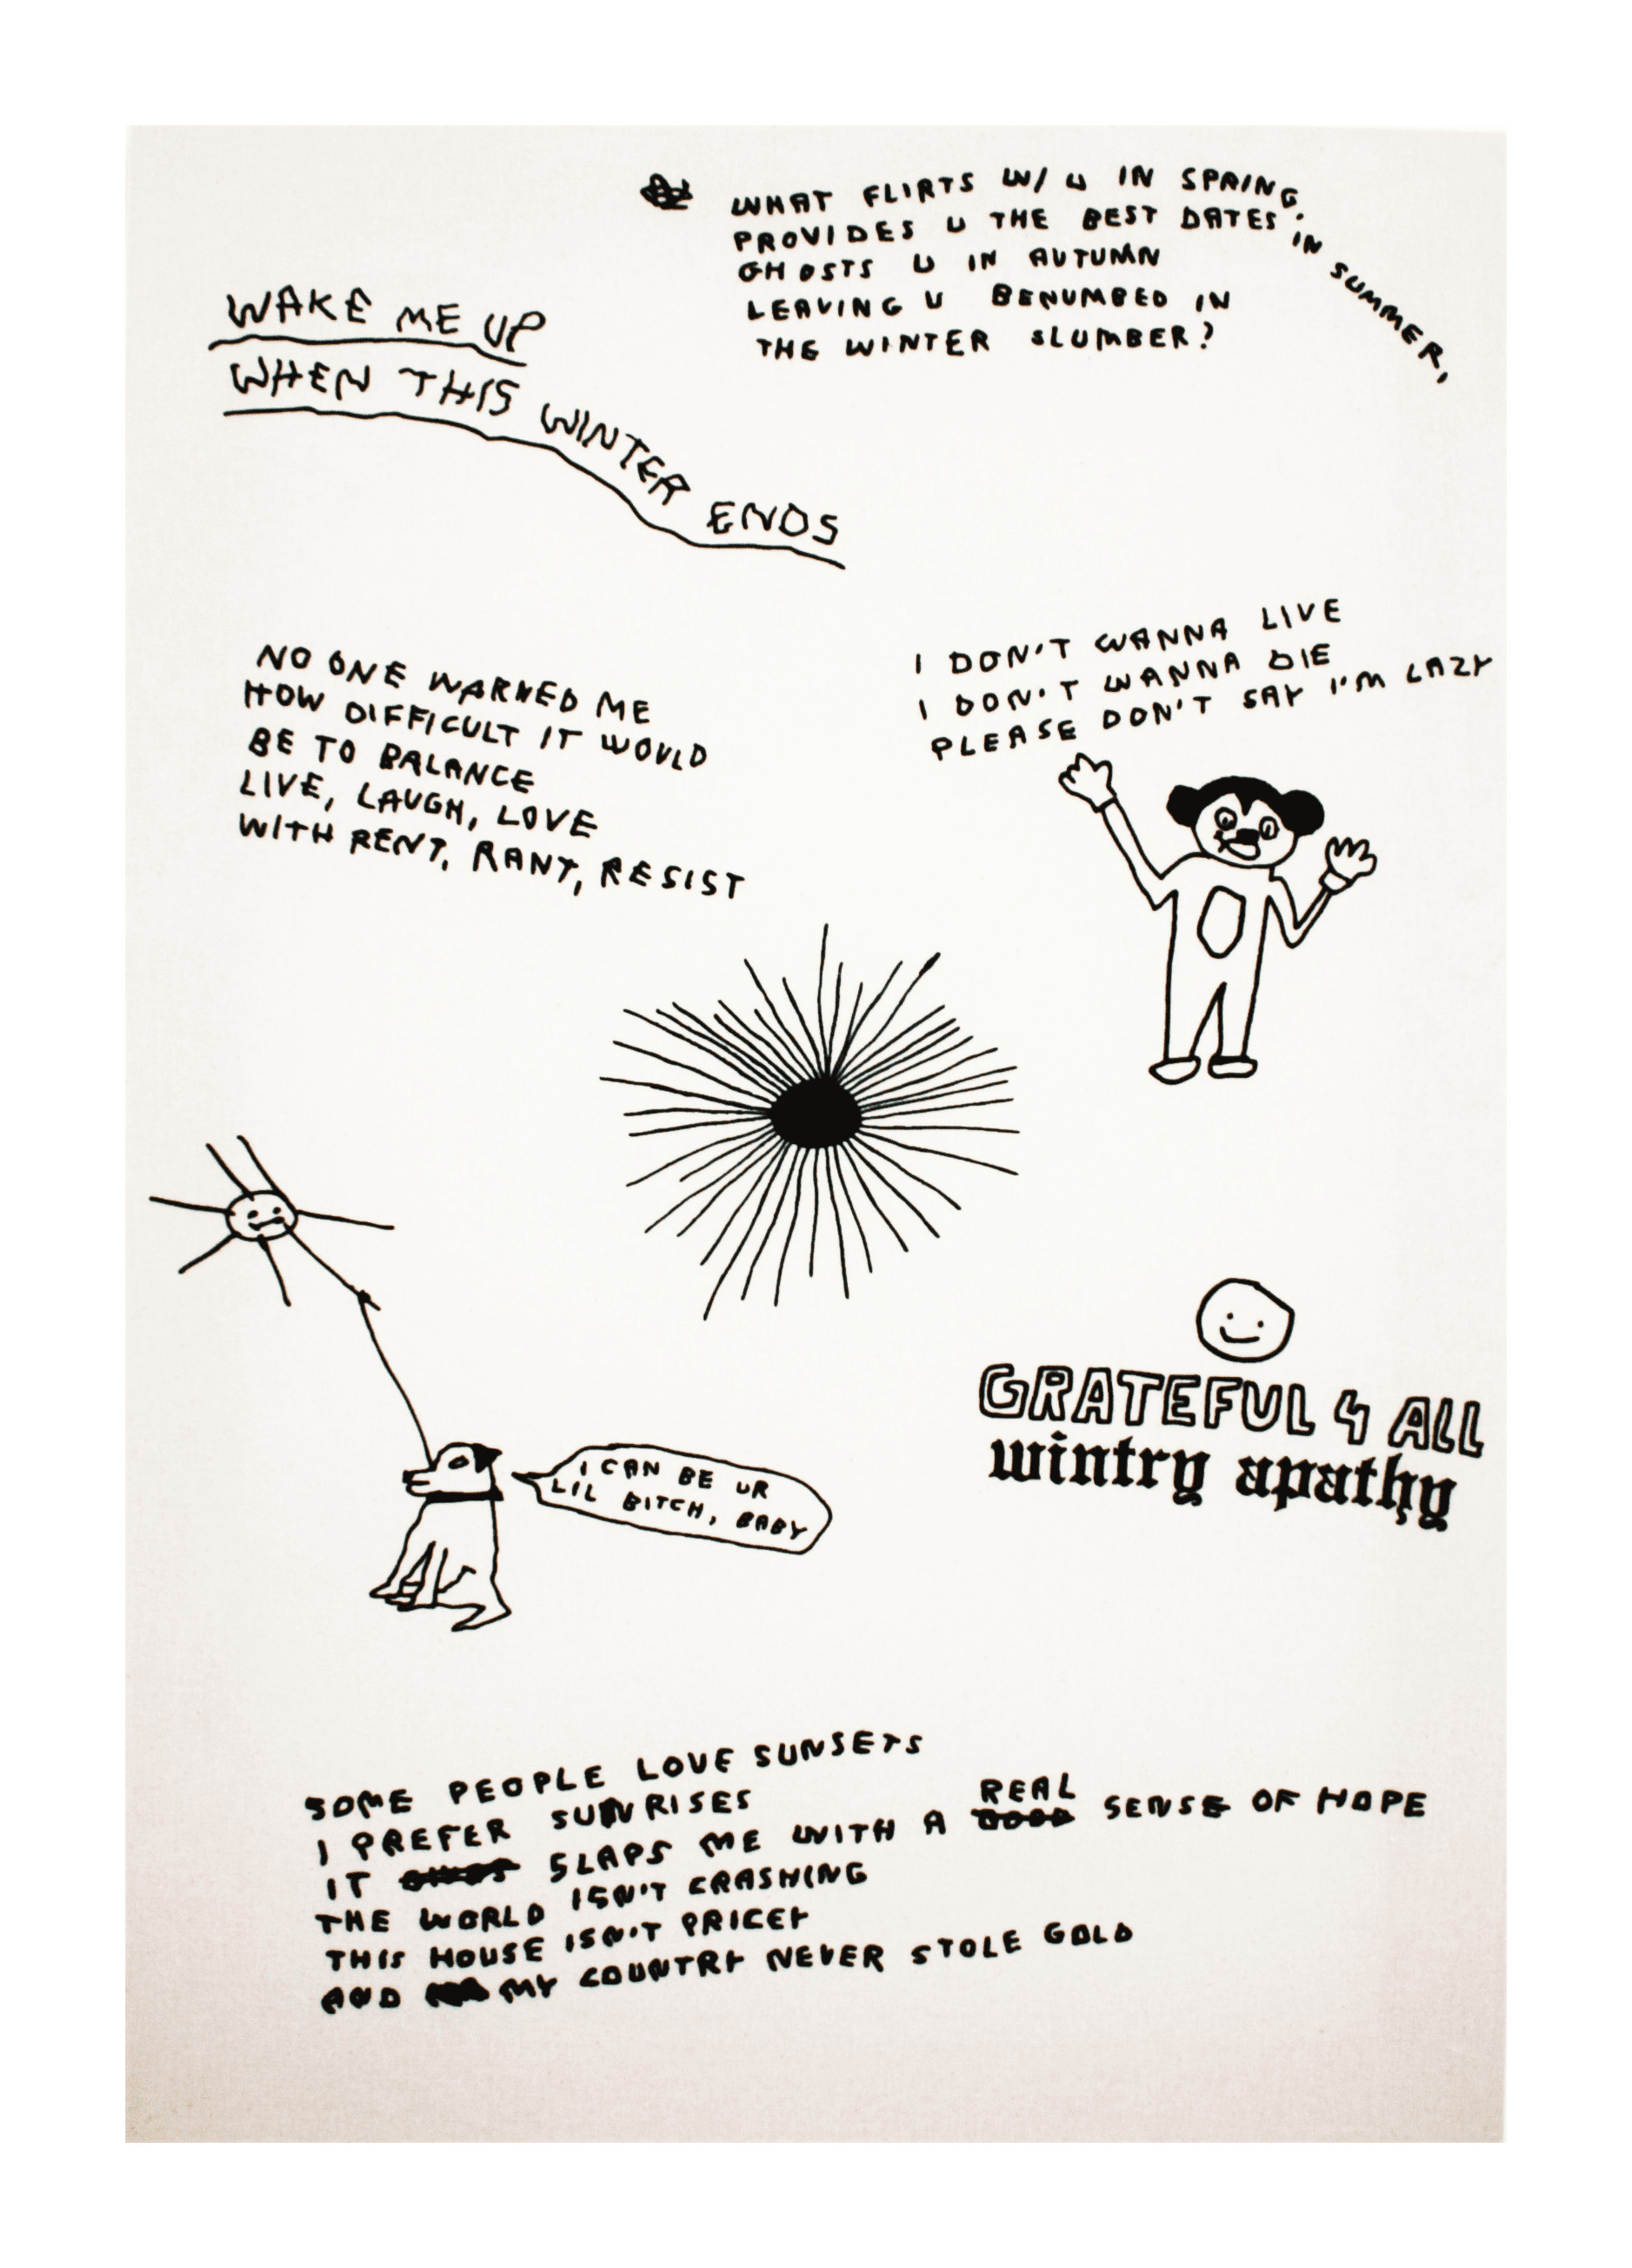 WHAT FLIRTS W/ U IN SPRING,
PROVIDES U THE BEST DATES IN SUMMER,
GHOSTS U IN AUTUMN
LEAVING U BENUMBED IN
THE WINTER SLUMBER?
WAKE ME UP
WHEN THIS WINTER ENDS
NO ONE WARNED ME
HOW DIFFICULT IT WOULD
BE TO BALANCE
LIVE, LAUGH, LOVE
WITH RENT, RANT, RESIST
I DON'T WANNA LIVE
I DON'T WANNA DIE
PLEASE DON'T SAY I'M LAZY
I CAN BE UR
LIL BITCH, BABY
GRATEFUL 4 ALL
wintry apathy
SOME PEOPLE LOVE SUNSETS
I PREFER SUNRISES
IT SLAPS ME WITH A REAL SENSE OF HOPE
THE WORLD ISN'T CRASHING
THIS HOUSE ISN'T PRICEY
AND MY COUNTRY NEVER STOLE GOLD